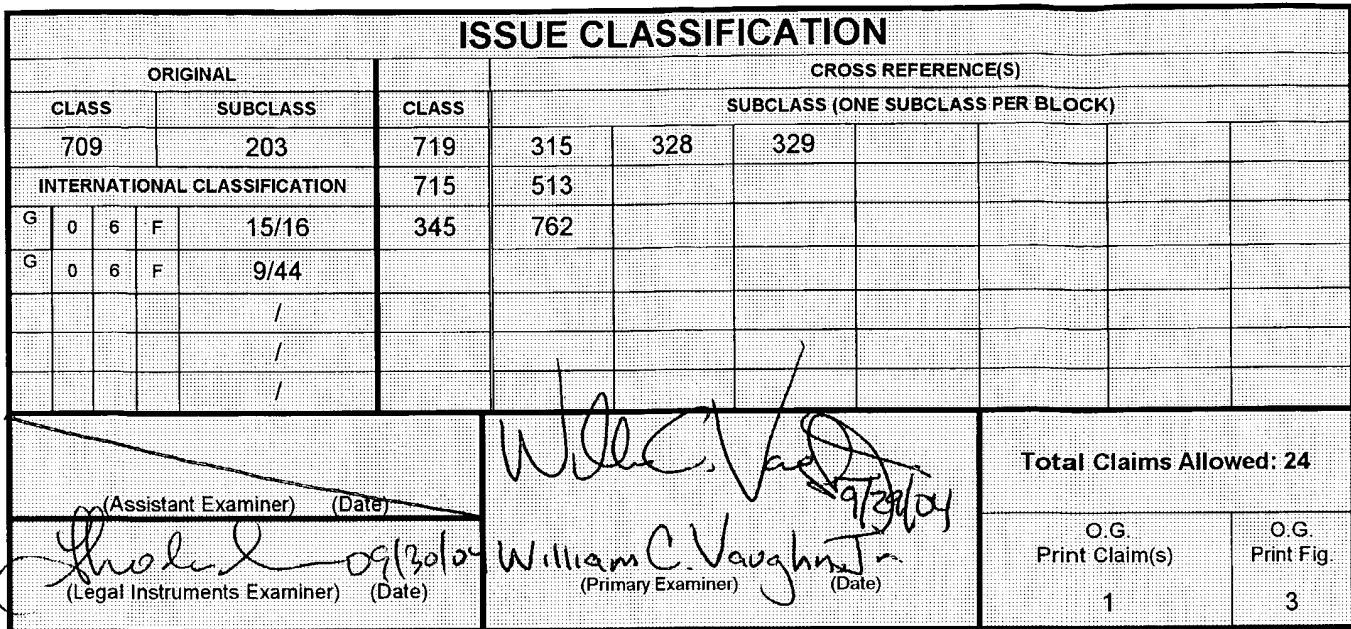 ISSUE CLASSIFICATION
ORIGINAL CROSS REFERENCE(S)
CLASS SUBCLASS CLASS SUBCLASS (ONE SUBCLASS PER BLOCK)
709 203 719 315 328 329
INTERNATIONAL CLASSIFICATION 715 513
G 0 6 F 15/16 345 762
G 0 6 F 9/44
/
/
/
(Assistant Examiner) (Date)
9/29/04
09/30/04
(Legal Instruments Examiner) (Date)
William C. Vaughn Jr.
(Primary Examiner) (Date)
Total Claims Allowed: 24
O.G. Print Claim(s)
1
O.G. Print Fig.
3